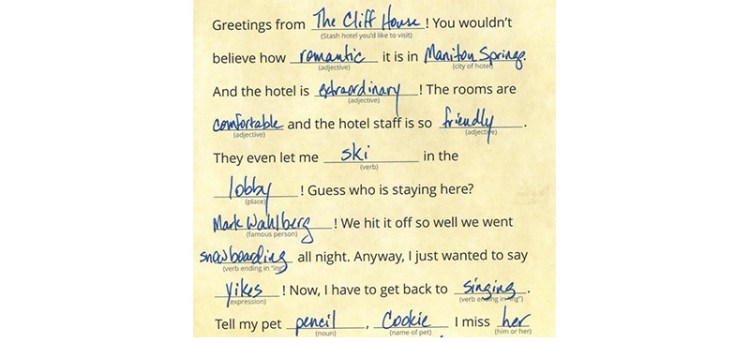 Greetings from The Cliff House! You wouldn't
(Stash hotel you'd like to visit)
believe how romantic it is in Maniton Springs.
(adjective) (city of hotel)
And the hotel is extraordinary! The rooms are
(adjective)
comfortable and the hotel staff is so friendly.
(adjective) (adjective)
They even let me ski in the
(verb)
lobby! Guess who is staying here?
(place)
Mark Wahlberg! We hit it off so well we went
(famous person)
snowboarding all night. Anyway, I just wanted to say
(verb ending in "ing")
yikes! Now, I have to get back to singing.
(expression) (verb ending in "ing")
Tell my pet pencil, Cookie I miss her
(noun) (name of pet) (him or her)